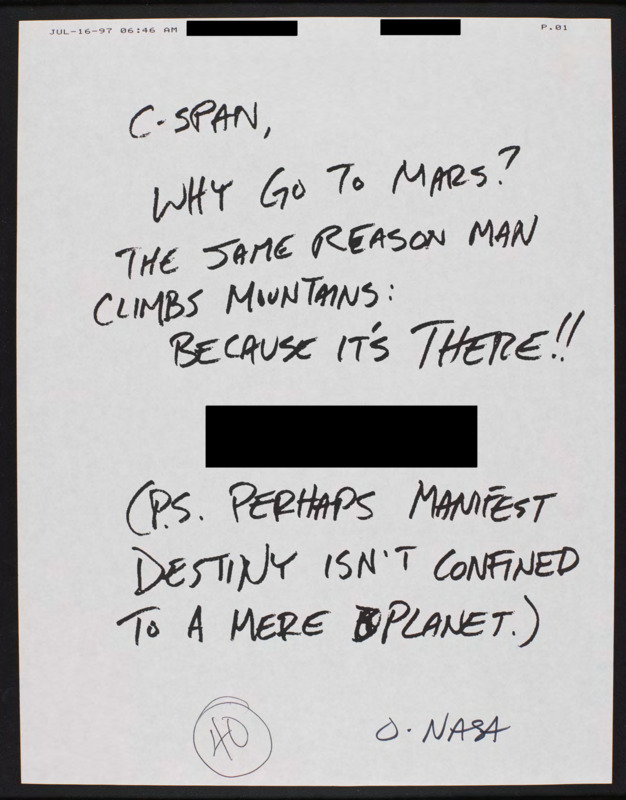 JUL-16-97 06:46 AM P.01
C-SPAN,
WHY GO TO MARS?
THE SAME REASON MAN
CLIMBS MOUNTAINS:
BECAUSE IT'S THERE!!
(P.S. PERHAPS MANIFEST
DESTINY ISN'T CONFINED
TO A MERE PLANET.)
40
O. NASA